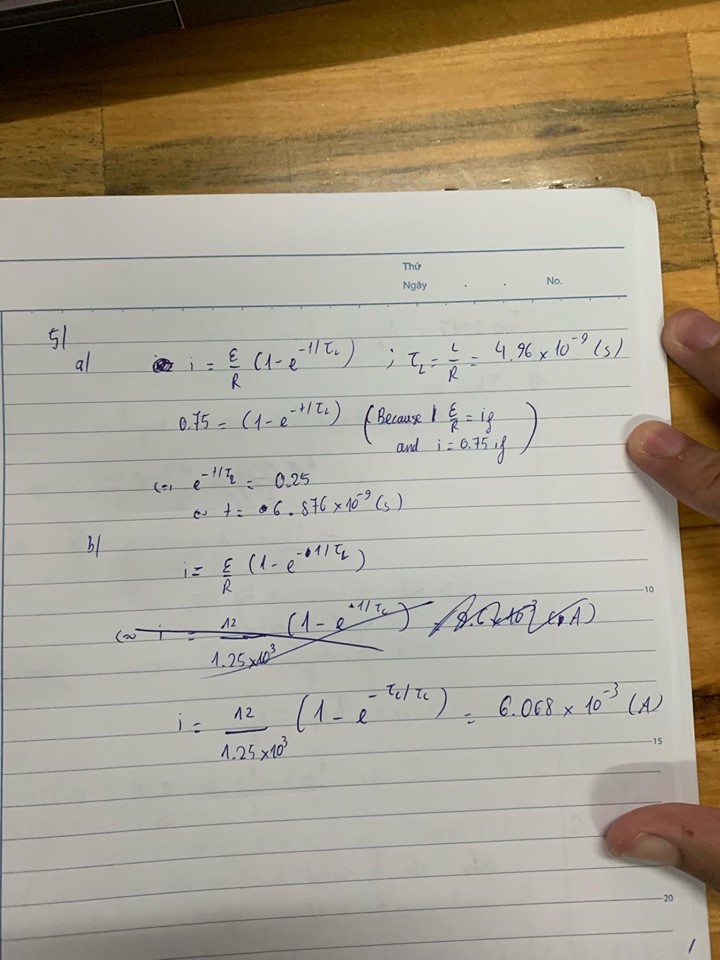 Thứ
Ngày . . No.
5/
a/ i = ε/R (1-e^-t/τL) ; τL = L/R = 4.96 x 10^-9 (s)
0.75 = (1-e^-t/τL) (Because ε/R = if
and i = 0.75 if)
⇔ e^-t/τL = 0.25
⇔ t = 6.876 x 10^-9 (s)
b/
i = ε/R (1-e^-t/τL)
10
⇔ i = 12/1.25x10^3 (1-e^-t/τL)
i = 12/1.25x10^3 (1-e^-τL/τL) = 6.068 x 10^-3 (A)
15
20